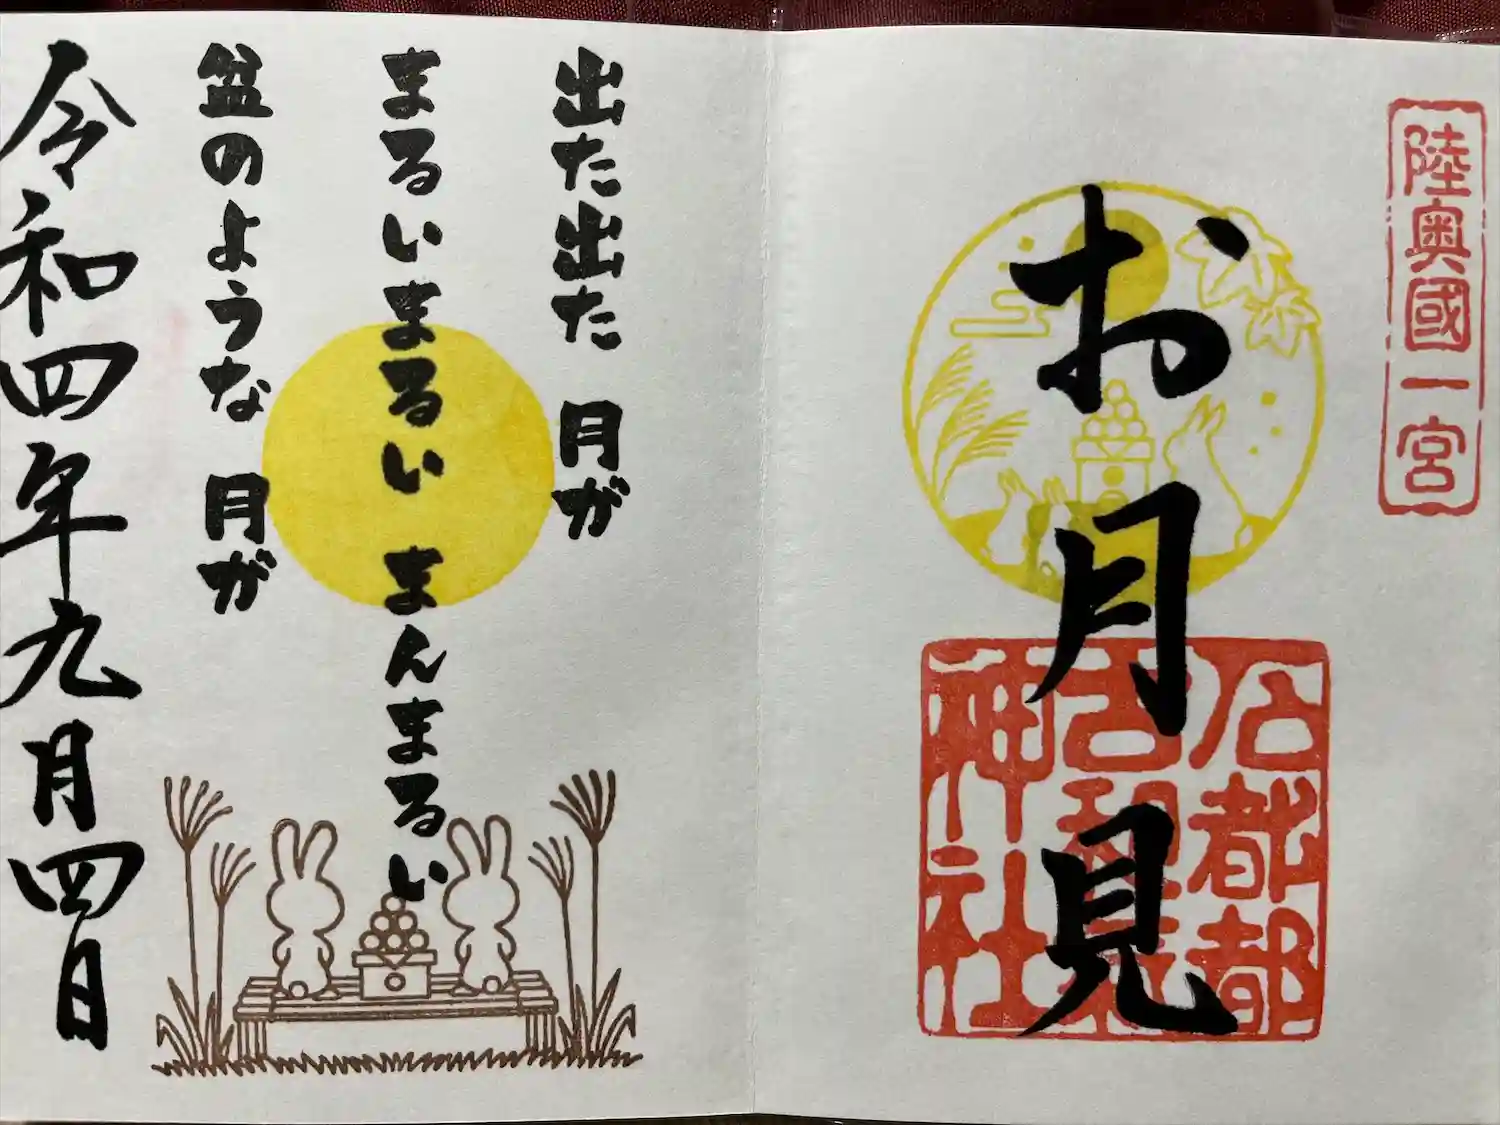 陸奥國一宮
お月見
石都都
古和氣
神社
出た出た 月が
まるいまるい まんまるい
盆のような 月が
令和四年九月四日